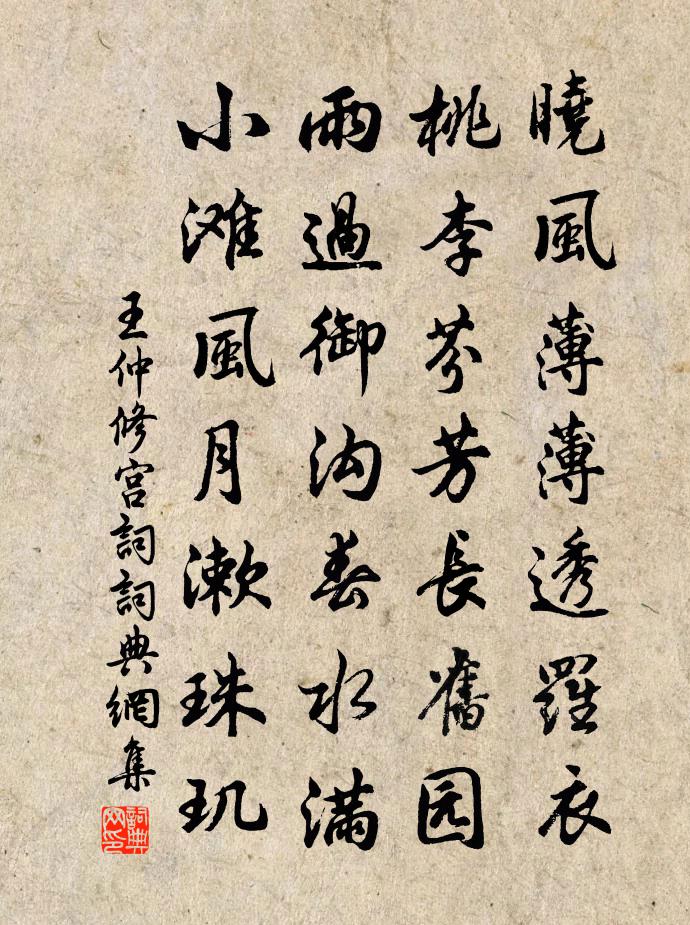 曉風薄薄透羅衣
桃李芬芳長舊园
雨過御沟春水滿
小滩風月漱珠玑
王仲修宫詞詞典網集
詞典网印